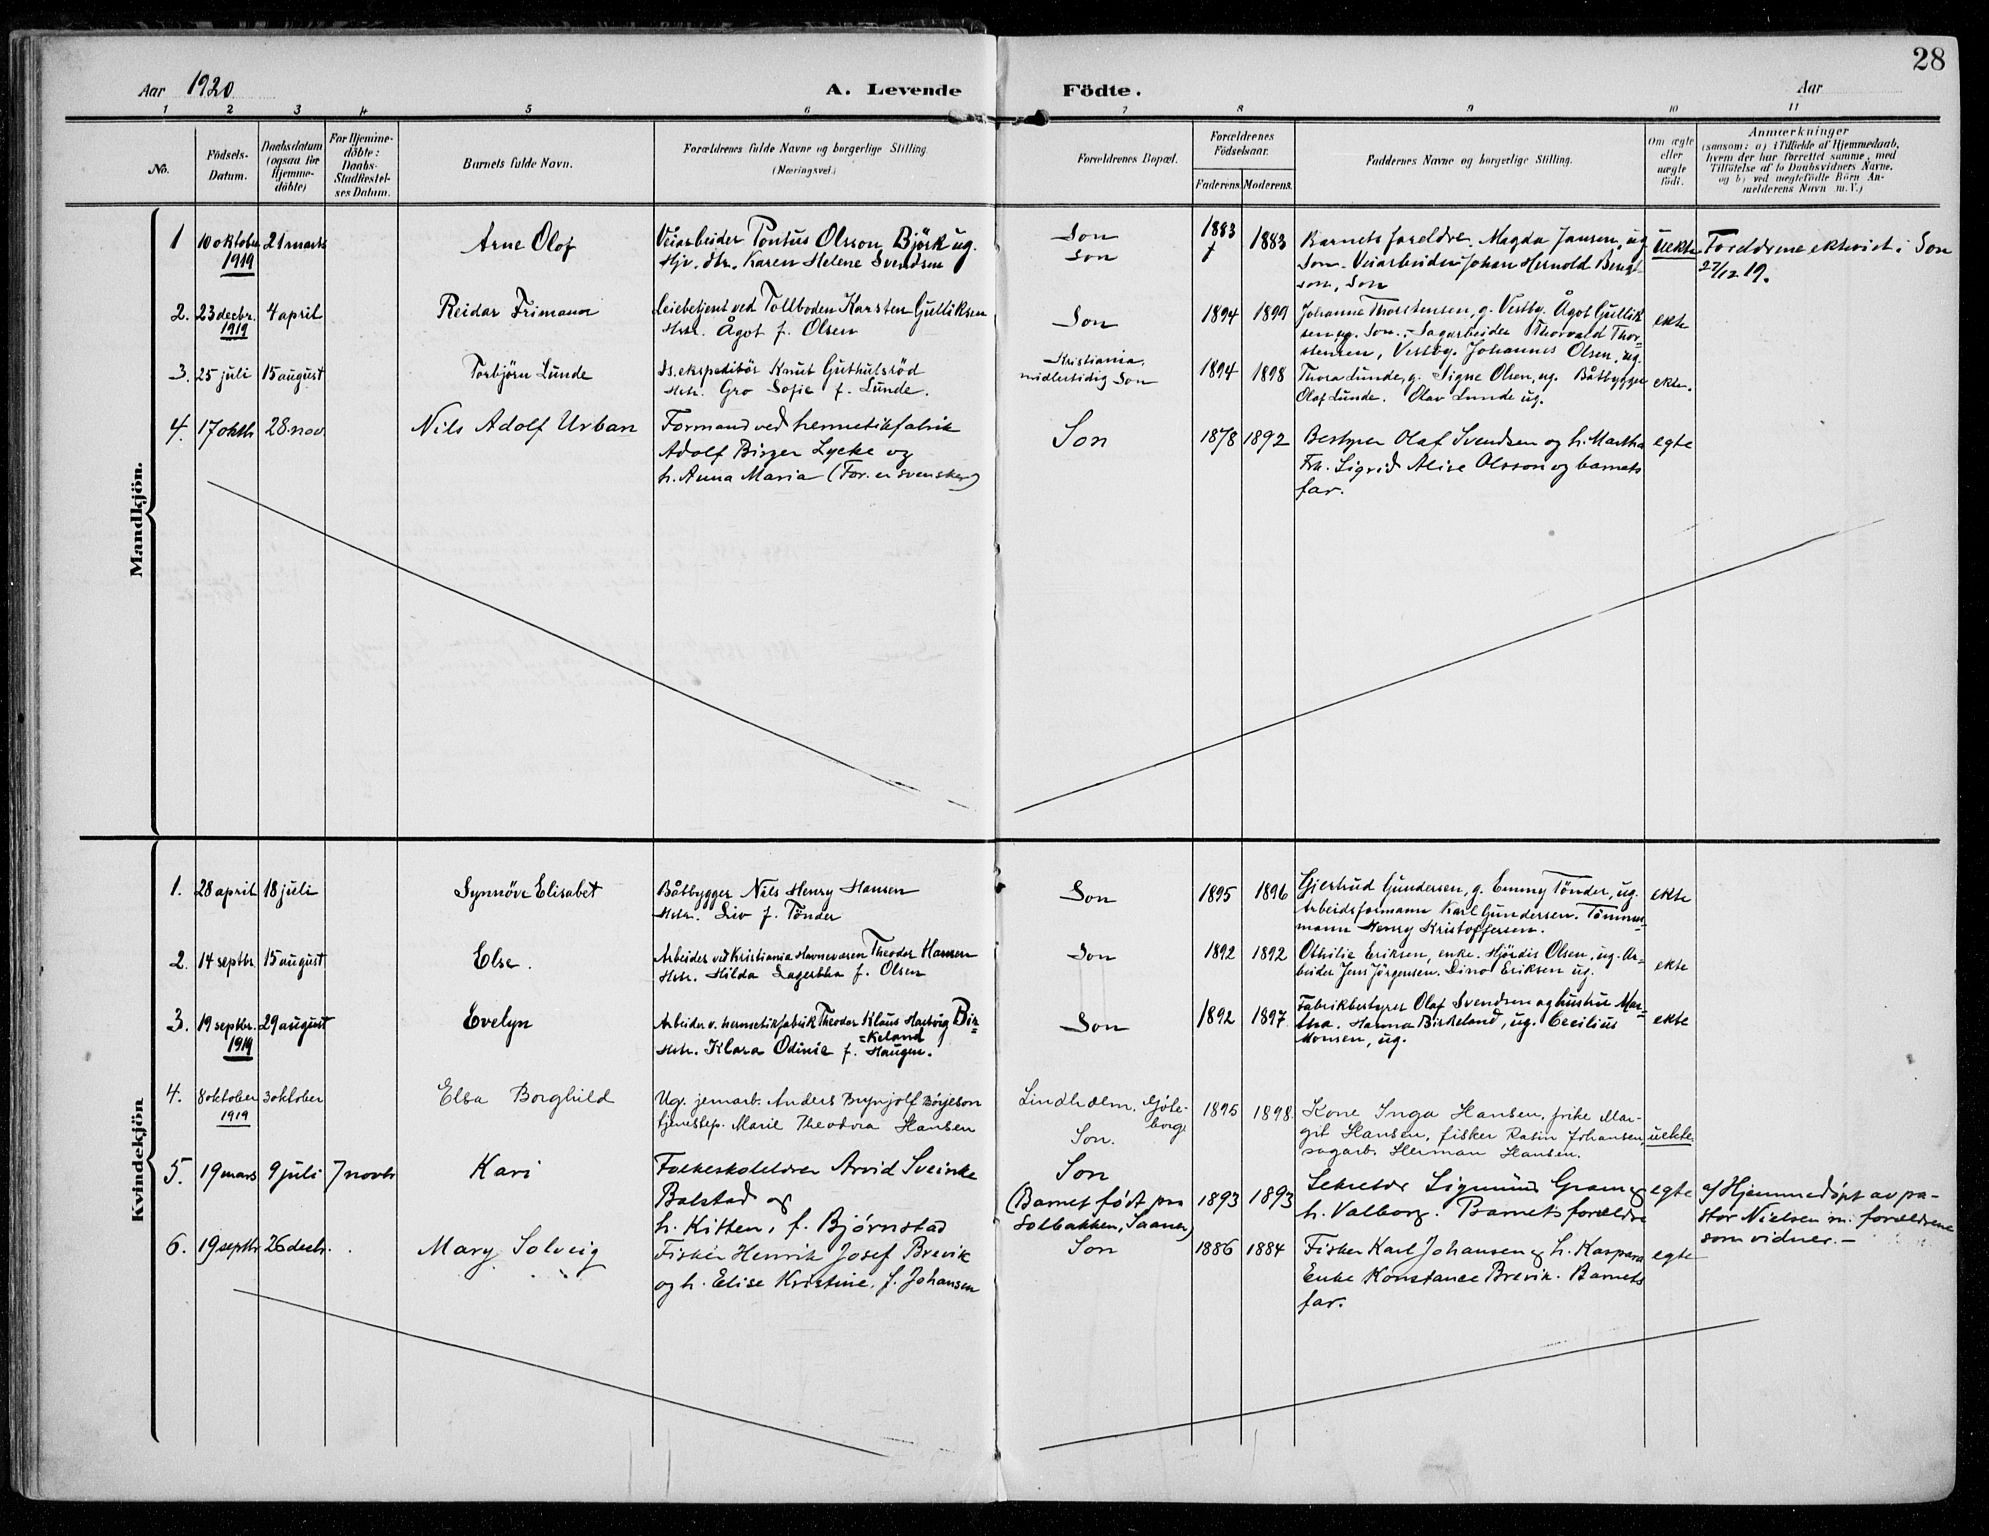 28
Aar 1920 A. Levende Födte. Aar
1 2 3 4 5 6 7 8 9 10 11
No.
Födsels-
Datum.
Daabsdatum
(ogsaa for
Hjemme-
döbte)
For Hjemme-
döbte:
Daabs-
Stadfæstel-
ses Datum.
Barnets fulde Navn.
Forældrenes fulde Navne og borgerlige Stilling
(Næringsvei.)
Forældrenes Bopæl.
Forældrenes
Födselsaar.
Faderens. Moderens.
Faddernes Navne og borgerlige Stilling.
Om ægte
eller
uægte
födt.
Anmærkninger
(saasom: a) i Tilfælde af Hjemmedaab,
hvem der har forrettet samme, med
Tilföielse af to Daabsvidners Navne,
og b) ved uægtefödte Börn An-
melderens Navn m. V.)
Mandkjön.
1 10 oktober 21 mars Arne Olof Veiarbeider Pontus Olsson Björk ug. Son 1883 1883 Barnets foreldre. Magda Jansen, ug uekte Foreldrene ekteviet i Son
1919 Hjv. dtr. Karen Helene Svendsen Son Son. Veiarbeider Johan Hernold Bengt- 27/12 19.
son, Son
2. 23 decbr. 4 april Reidar Frimann Leiebetjent ved Tollboden Karsten Gulliksen Son 1894 1899 Johanne Thorstensen, g. Vestby. Ågot Gullik- ekte
1919 Hstr. Ågot f. Olsen sen, ug. Son. Sagarbeider Thorvald Thor-
stensen, Vestby. Johannes Olsen, ug.
3. 25 juli 15 august Torbjörn Lunde Ds. ekspeditör Knut Guthulsröd Kristiania, 1894 1898 Thora Lunde, g. Signe Olsen, ug. Båtbygger ekte.
Hstr. Gro Sofie f. Lunde. midlertidig Son Olaf Lunde. Olav Lunde ug.
4. 17 oktb. 28. nov. Nils Adolf Urban Formand ved hermetikfabrik Son 1878 1892 Bestyrer Olaf Svendsen og h. Martha egte
Adolf Birger Lycke og Frk. Sigrid Alise Olsson og barnets
h. Anna Maria (For. er svensker) far.
Kvindekjön
1. 28 april 18 juli Synnöve Elisabet Båtbygger Nils Henry Hansen Son 1895 1896 Gjertrud Gundersen, g. Emmy Tönder, ug. ekte
Hstr. Liv f. Tönder Arbeidsformann Karl Gundersen. Tömmer-
mann Henry Kristoffersen.
2. 14 septbr 15 august Else. Arbeider ved Kristiania Havnevæsen Theodor Hansen Son 1892 1892 Othilie Eriksen, enke. Hjördis Olsen, ug. Ar- ekte
Hstr. Hilda Lagertha f. Olsen beider Jens Jörgensen. Dino Eriksen ug.
3. 19 septbr. 29 august Evelyn Arbeider v. hermetikfabrik Theodor Klaus Hartvig Bir- Son 1892 1897 Fabrikbestyrer Olaf Svendsen og hustru Mar- ekte
1919 =keland
Hstr. Klara Odinie f. Haugen. tha. Hanna Birkeland, ug. Cecilius
Monsen, ug.
4. 8 oktober 3 oktober Elsa Borghild Ug. jernarb. Anders Brynjolf Börjeson Lindholm, Göte- 1895 1898 Kone Inga Hansen, frike Mar- uekte.
1919 tjenestep. Marie Theodora Hansen borg git Hansen, fisker Rasin Johansen,
Son. sagarb. Herman Hansen.
5. 19 mars 9 juli 7 novbr Kari Folkeskolelærer Arvid Sveinke Son 1893 1893 Sekretær Sigmund Gram og egte a/ Hjemmedöpt av pa-
Balstad og (Barnet født paa h. Valborg. Barnets forældre stor Nielsen m. forældrene
h. Kitten, f. Bjørnstad Solbakken, Saaner) som vidner.-
6. 19 septbr 26 decbr. Mary Solveig Fisker Henrik Josef Brevik Son 1886 1884 Fisker Karl Johansen og h. Kaspara egte
og h. Elise Kristine, f. Johansen Enke Konstance Brevik. Barnets
far.